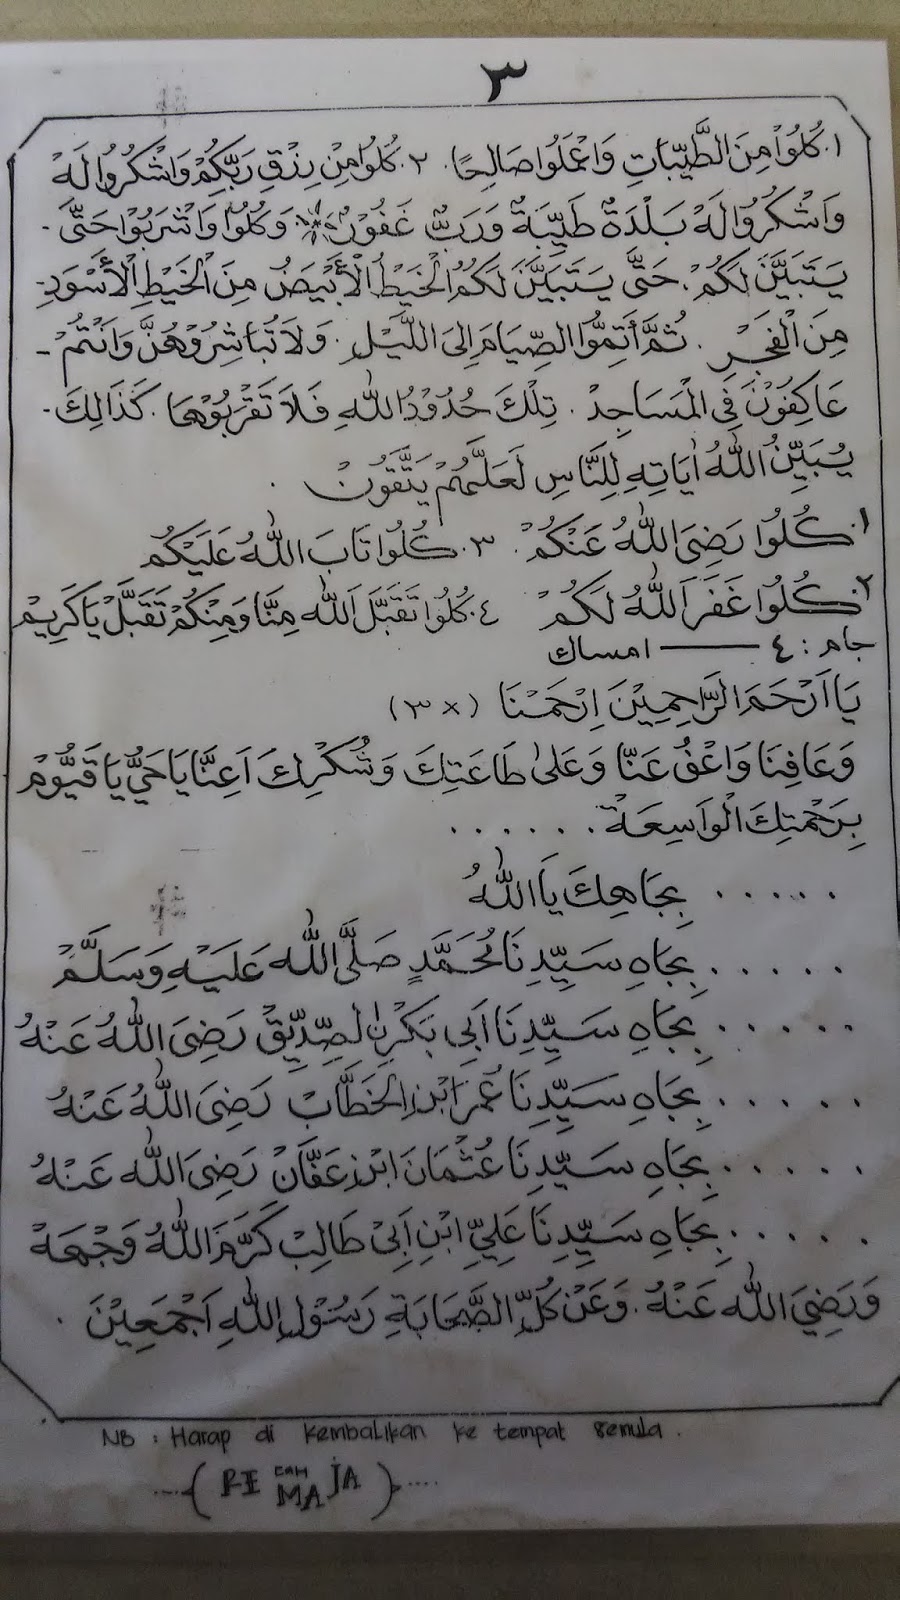 ٣
١. كُلُوْا مِنَ الطَّيِّبَاتِ وَاعْمَلُوا صَالِحًا. ٢. كُلُوْا مِنْ رِزْقِ رَبِّكُمْ وَاشْكُرُوْا لَهُ
وَاشْكُرُوْا لَهُ بَلْدَةٌ طَيِّبَةٌ وَرَبٌّ غَفُوْرٌ * وَكُلُوْا وَاشْرَبُوْا حَتَّى -
يَتَبَيَّنَ لَكُمْ. حَتَّى يَتَبَيَّنَ لَكُمُ الْخَيْطُ الْأَبْيَضُ مِنَ الْخَيْطِ الْأَسْوَدِ -
مِنَ الْفَجْرِ. ثُمَّ أَتِمُّوا الصِّيَامَ إِلَى اللَّيْلِ. وَلَا تُبَاشِرُوْهُنَّ وَانْتُمْ -
عَاكِفُوْنَ فِي الْمَسَاجِدِ. تِلْكَ حُدُوْدُ اللهِ فَلَا تَقْرَبُوْهَا. كَذَالِكَ -
يُبَيِّنُ اللهُ اٰيَاتِهِ لِلنَّاسِ لَعَلَّهُمْ يَتَّقُوْنَ .
١. كُلُوْا رَضِيَ اللهُ عَنْكُمْ. ٣. كُلُوْا تَابَ اللهُ عَلَيْكُمْ
٢. كُلُوْا غَفَرَ اللهُ لَكُمْ ٤. كُلُوْا تَقَبَّلَ اللهُ مِنَّا وَمِنْكُمْ تَقَبَّلْ يَا كَرِيْمُ
جام : ٤ ——— امساك
يَا اَرْحَمَ الرَّاحِمِيْنَ اِرْحَمْنَا (×٣)
وَعَافِنَا وَاعْفُ عَنَّا وَعَلٰى طَاعَتِكَ وَشُكْرِكَ اَعِنَّا يَا حَيُّ يَا قَيُّوْمُ
بِرَحْمَتِكَ الْوَاسِعَةْ. . . . . . .
. . . . . بِجَاهِكَ يَا اَللهُ
. . . . . بِجَاهِ سَيِّدِنَا مُحَمَّدٍ صَلَّى اللهُ عَلَيْهِ وَسَلَّمْ
. . . . . بِجَاهِ سَيِّدِنَا اَبِى بَكْرٍ الصِّدِّيْقْ رَضِيَ اللهُ عَنْهُ
. . . . . بِجَاهِ سَيِّدِنَا عُمَرَ ابْنِ الْخَطَّابْ رَضِيَ اللهُ عَنْهُ
. . . . . بِجَاهِ سَيِّدِنَا عُثْمَانَ ابْنِ عَفَّانْ رَضِيَ اللهُ عَنْهُ
. . . . . بِجَاهِ سَيِّدِنَا عَلِيِّ ابْنِ اَبِىْ طَالِبْ كَرَّمَ اللهُ وَجْهَهْ
وَرَضِيَ اللهُ عَنْهُ. وَعَنْ كُلِّ الصَّحَابَةِ رَسُوْلِ اللهِ اَجْمَعِيْنَ .
NB : Harap di kembalikan ke tempat semula .
....( RE MA JA )....